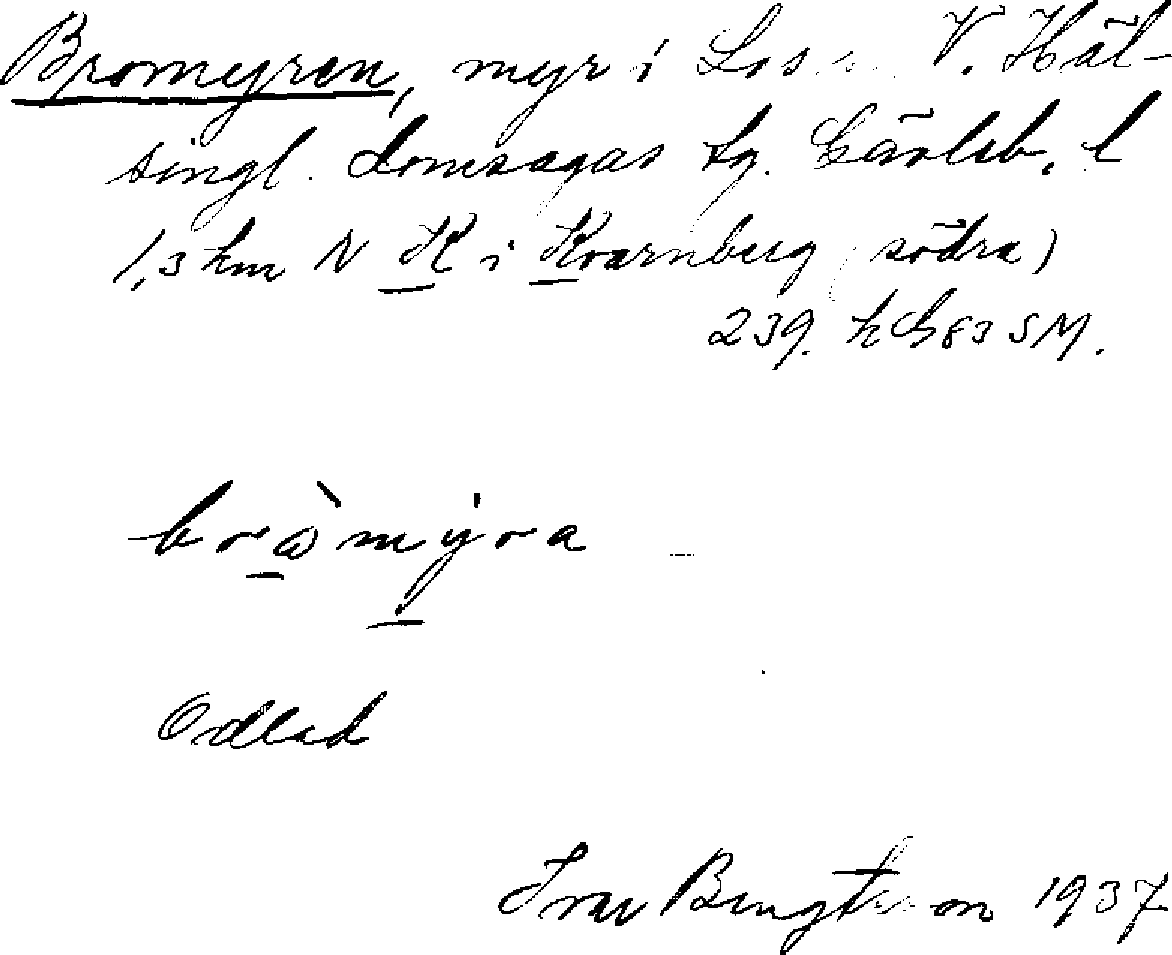 Bromyren, myr i Los s. V. Häl-
singl. domsagas tg. Gävleb. l
1,3 km N K i Kvarnberg (södra)
239. h G 83 SM.
bròmýra
Odlad
Ivar Bengtsson 1937